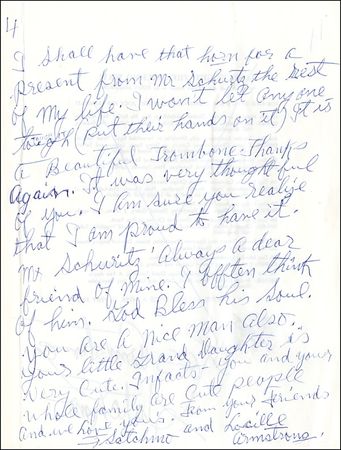 4
I shall have that horn for a
present from Mr Schuritz the rest
of my life. I won't let anyone
tough (put their hands on it) It is
a Beautiful Trombone. Thanks
Again. It was very thoughtful
of you. I am sure you realize
that I am proud to have it.
Mr Schuritz 'Always a dear
friend of mine. I offten think
of him. God Bless his Soul.
You are a Nice man also.
your little Grand Daughter is
Very Cute. Infacts - you and your
whole family are Cute people
and we love yours. From your Friends
Satchmo and Lucille
Armstrong.